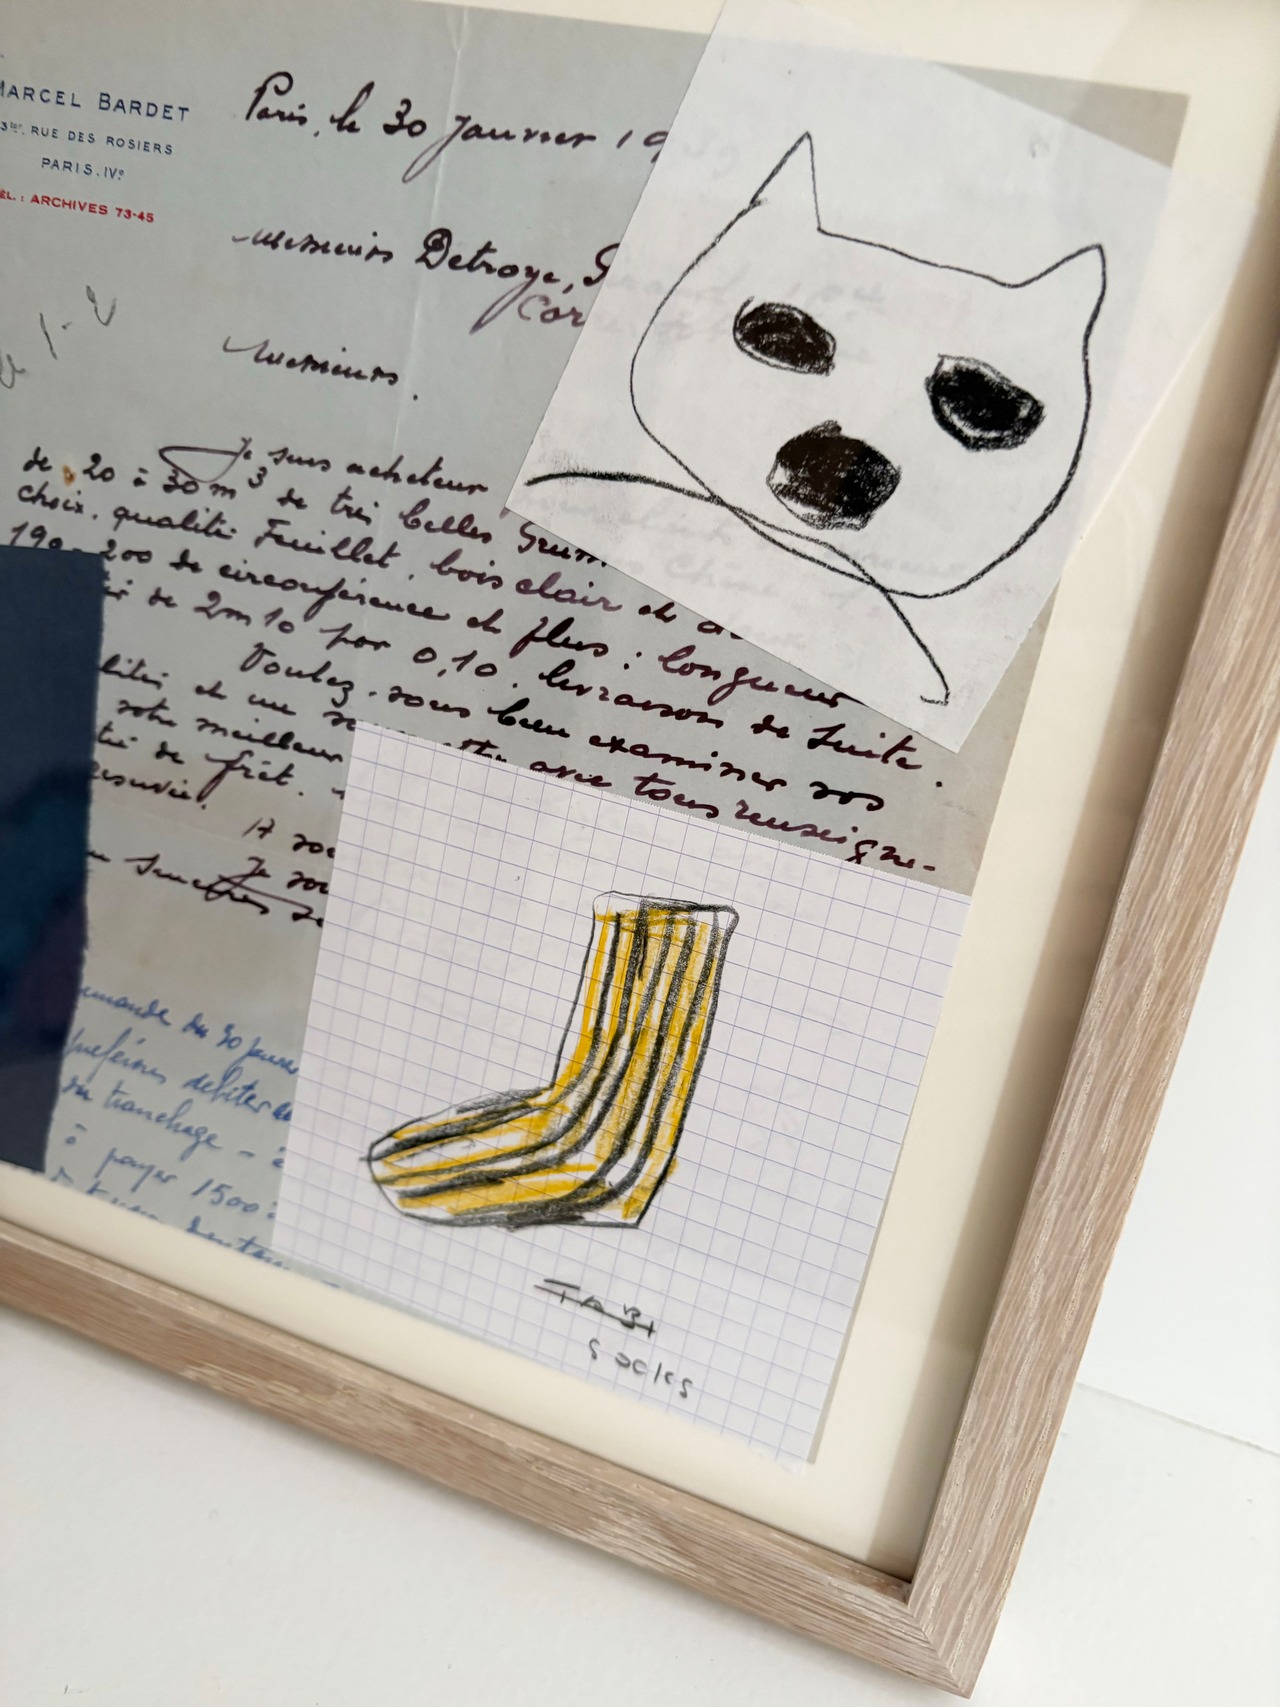 MARCEL BARDET
RUE DES ROSIERS
PARIS. IVº
ARCHIVES 73-45
Paris, le 30 Janvier 19
Messieurs Detroye, G
Cor
Messieurs.
Je suis acheteur
de 20 à 30 m3 de très belles Grum
choix. qualité Feuillet. bois clair et
190-200 de circonférence et plus : longueur
de 2m10 par 0,10. livraison de suite.
Voulez-vous bien examiner vos
lités et me avec tous renseigne-
votre meilleur
de frêt.
A vou
Je vou
emande du 30 Janvier
préférons débiter
du tranchage - à
à payer 1500
TABI
SOCKS